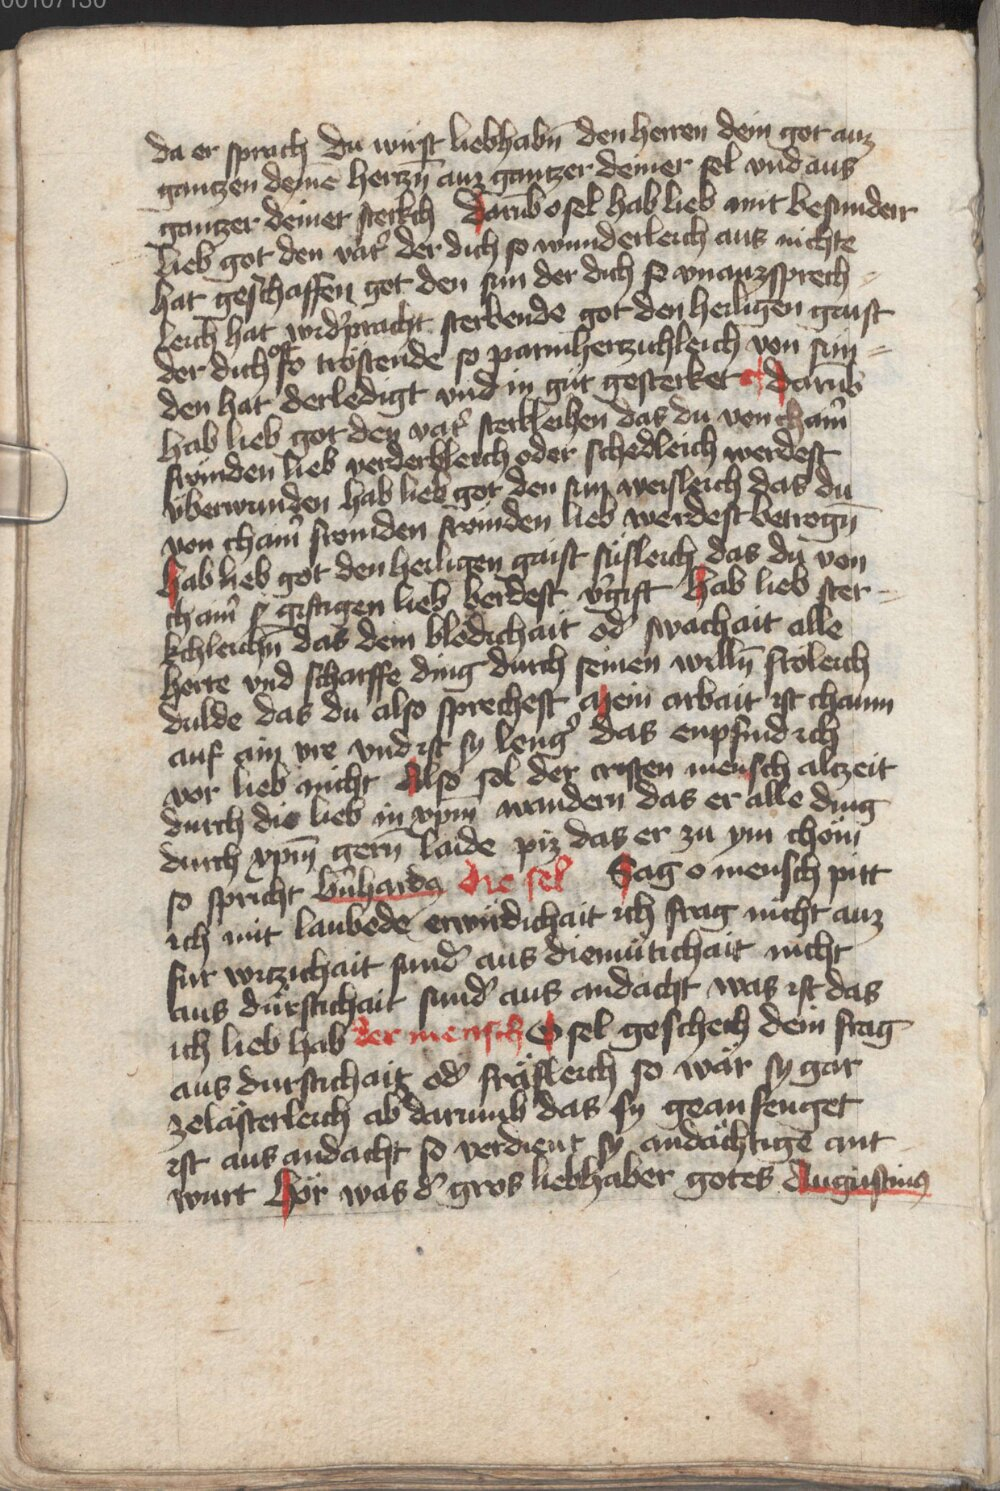 00107130
da er sprach du wirst liebhabn̄ den herren dein got auz
gantzen deinē herzn̄ auz gantzer deiner sel vnd aus
gantzer deiner sterkch Darūb o sel hab lieb mit besunderr
lieb got den vat̾ der dich so wunderleich aus nichte
hat geschaffen got den sun der dich so vnauzsprech=
leich hat wid̾pracht sterbende got den heiligen gaist
der dich oft so tröstende so parmherzichleich von sun=
den hat derledigt vnd in güt gesterket Darūb
hab lieb got den vat̾ sterkleihen das du von chain̾
frömden lieb verderbleich oder schedleich werdest
vberwunden hab lieb got den sun weisleich das du
von chain̾ fromden frömden lieb werdest betrogn̄
Hab lieb got den heiligen gaist süsleich das du von
chain̾ gistigen lieb berdest v̾gift Hab lieb ster=
kchleichn̄ das dein blödichait od̾ swachait alle
herte vnd scharffe ding durch seinen willn̄ fröleich
dulde das du also sprechest Mein arbait ist chaum
auf ain vre vnd ist sy leng̾ das enpfind ich
vor lieb nicht Also sol der cristen mensch alzeit
durch die lieb in xpm̄ wandern das er alle ding
durch xpm̄ gern̄ laide piz das er zu ym chöm
so spricht b̾nhardꝯ die sel Sag o mensch pitt
ich mit laubede erwirdichait ich frag nicht auz
fur witzichait sund̾ aus diemütichait nicht
aus dürstichait sund̾ aus andacht was ist das
ich lieb hab der mensch O sel geschech dein frag
aus durstichait od̾ fräfleich so wär sy gar
zelästerleich ab̾ darumb das sy geanfenget
ist aus andacht so verdient sy andächtige ant
wurt Hör was d̾ gros liebhaber gotes Augustinus